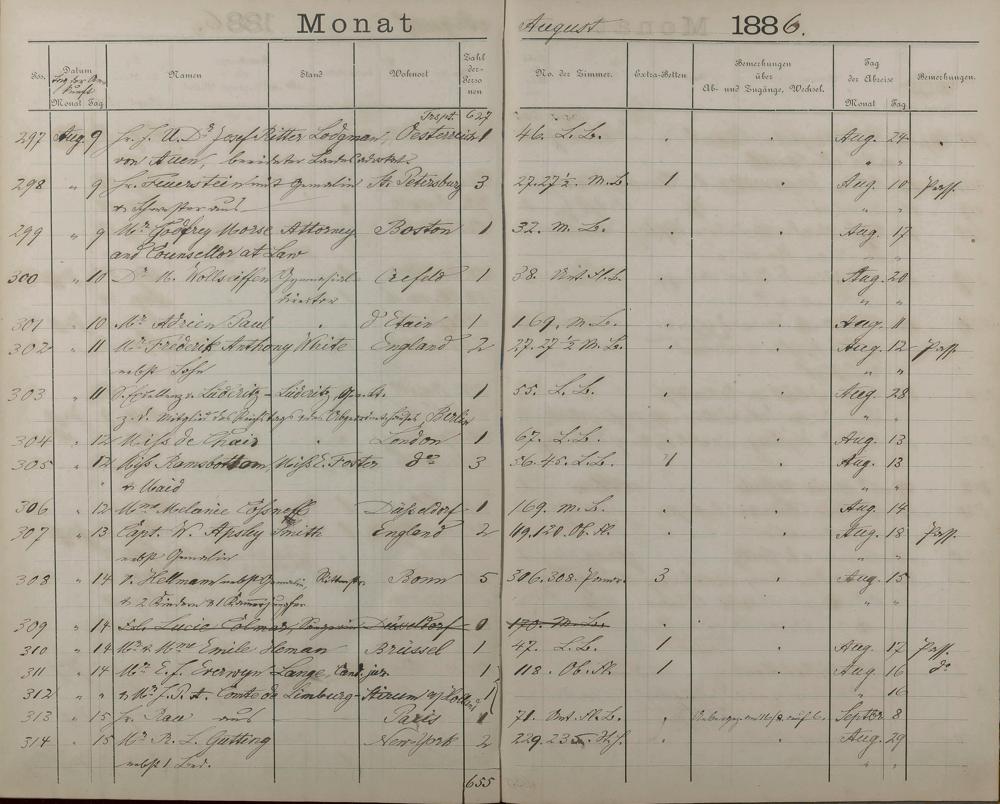 Monat August 1886.
Pos. Datum Tag der Ankunft Monat Tag Namen Stand Wohnort Zahl der Personen No. der Zimmer. Extra-Betten Bemerkungen über Ab- und Zugänge, Wechsel. Tag der Abreise Monat Tag Bemerkungen.
Trspt. 627
297 Aug. 9 Josef Ritter Lodgman, Oesterreich 1 46. L.B. . . Aug. 24
von Auen, beeideter Landesadvokat " "
298 " 9 Hr. Feuerstein mit Gemalin St. Petersburg 3 27.27 1/2. M.B. 1 . Aug. 10 Pass.
& Schwester aus " "
299 " 9 Mr. Godfrey Morse Attorney Boston 1 32. M.B. . . Aug. 17
and Counsellor at Law
300 " 10 Dr. Wollseiffen Gymnasial- Crefeld 1 38. Unt. . . Aug. 20
Director " "
301 " 10 Mr. Adrien Paul . d'Etain 1 169. M.B. . . Aug. 11
302 " 11 Mr. Frederik Anthony White England 2 27.27 1/2 M.B. . . Aug. 12 Pass.
nebst Sohn " "
303 " 11 v. Lüderitz-Lüderitz, 1 55. L.B. . . Aug. 28
z.D. Mitglied des Reichstags Berlin
304 " 12 Miss de Chair . London 1 67. L.B. . . Aug. 13
305 " 12 Miss Ramsbottom, Miss E. Foster do 3 36.45. L.B. 1 . Aug. 13
& Maid " "
306 " 12 Mme Melanie Düsseldorf 1 169. M.B. . . Aug. 14
307 " 13 Capt. W. Apsley Smith England 2 119.120. Ob. . . Aug. 18 Pass.
nebst Gemalin "
308 " 14 v. Hellmann nebst Gemalin, Rittmstr. Bonn 5 306.308. 3 . Aug. 15
& 2 Kindern & 1 Kammerjungfer " "
309 " 14 Lucie Düsseldorf 0 170. M.B.
310 " 14 Mr. & Mme Emile Heman Brüssel 1 47. L.B. 1 Aug. 17 Pass.
311 " 14 Mr. E.J. Everwyn Lange, Cand. jur. 1 118. Ob. 1 Aug. 16 do
312 " " & Mr. Comte de Limburg-Stirum Holland 1 " 16
313 " 15 Hr. Rau aus Paris 1 71. Unt. . Septbr. 8
314 " 15 Mr. R. L. Cutting New-York 2 229. . . Aug. 29
nebst 1 Bed. " "
655